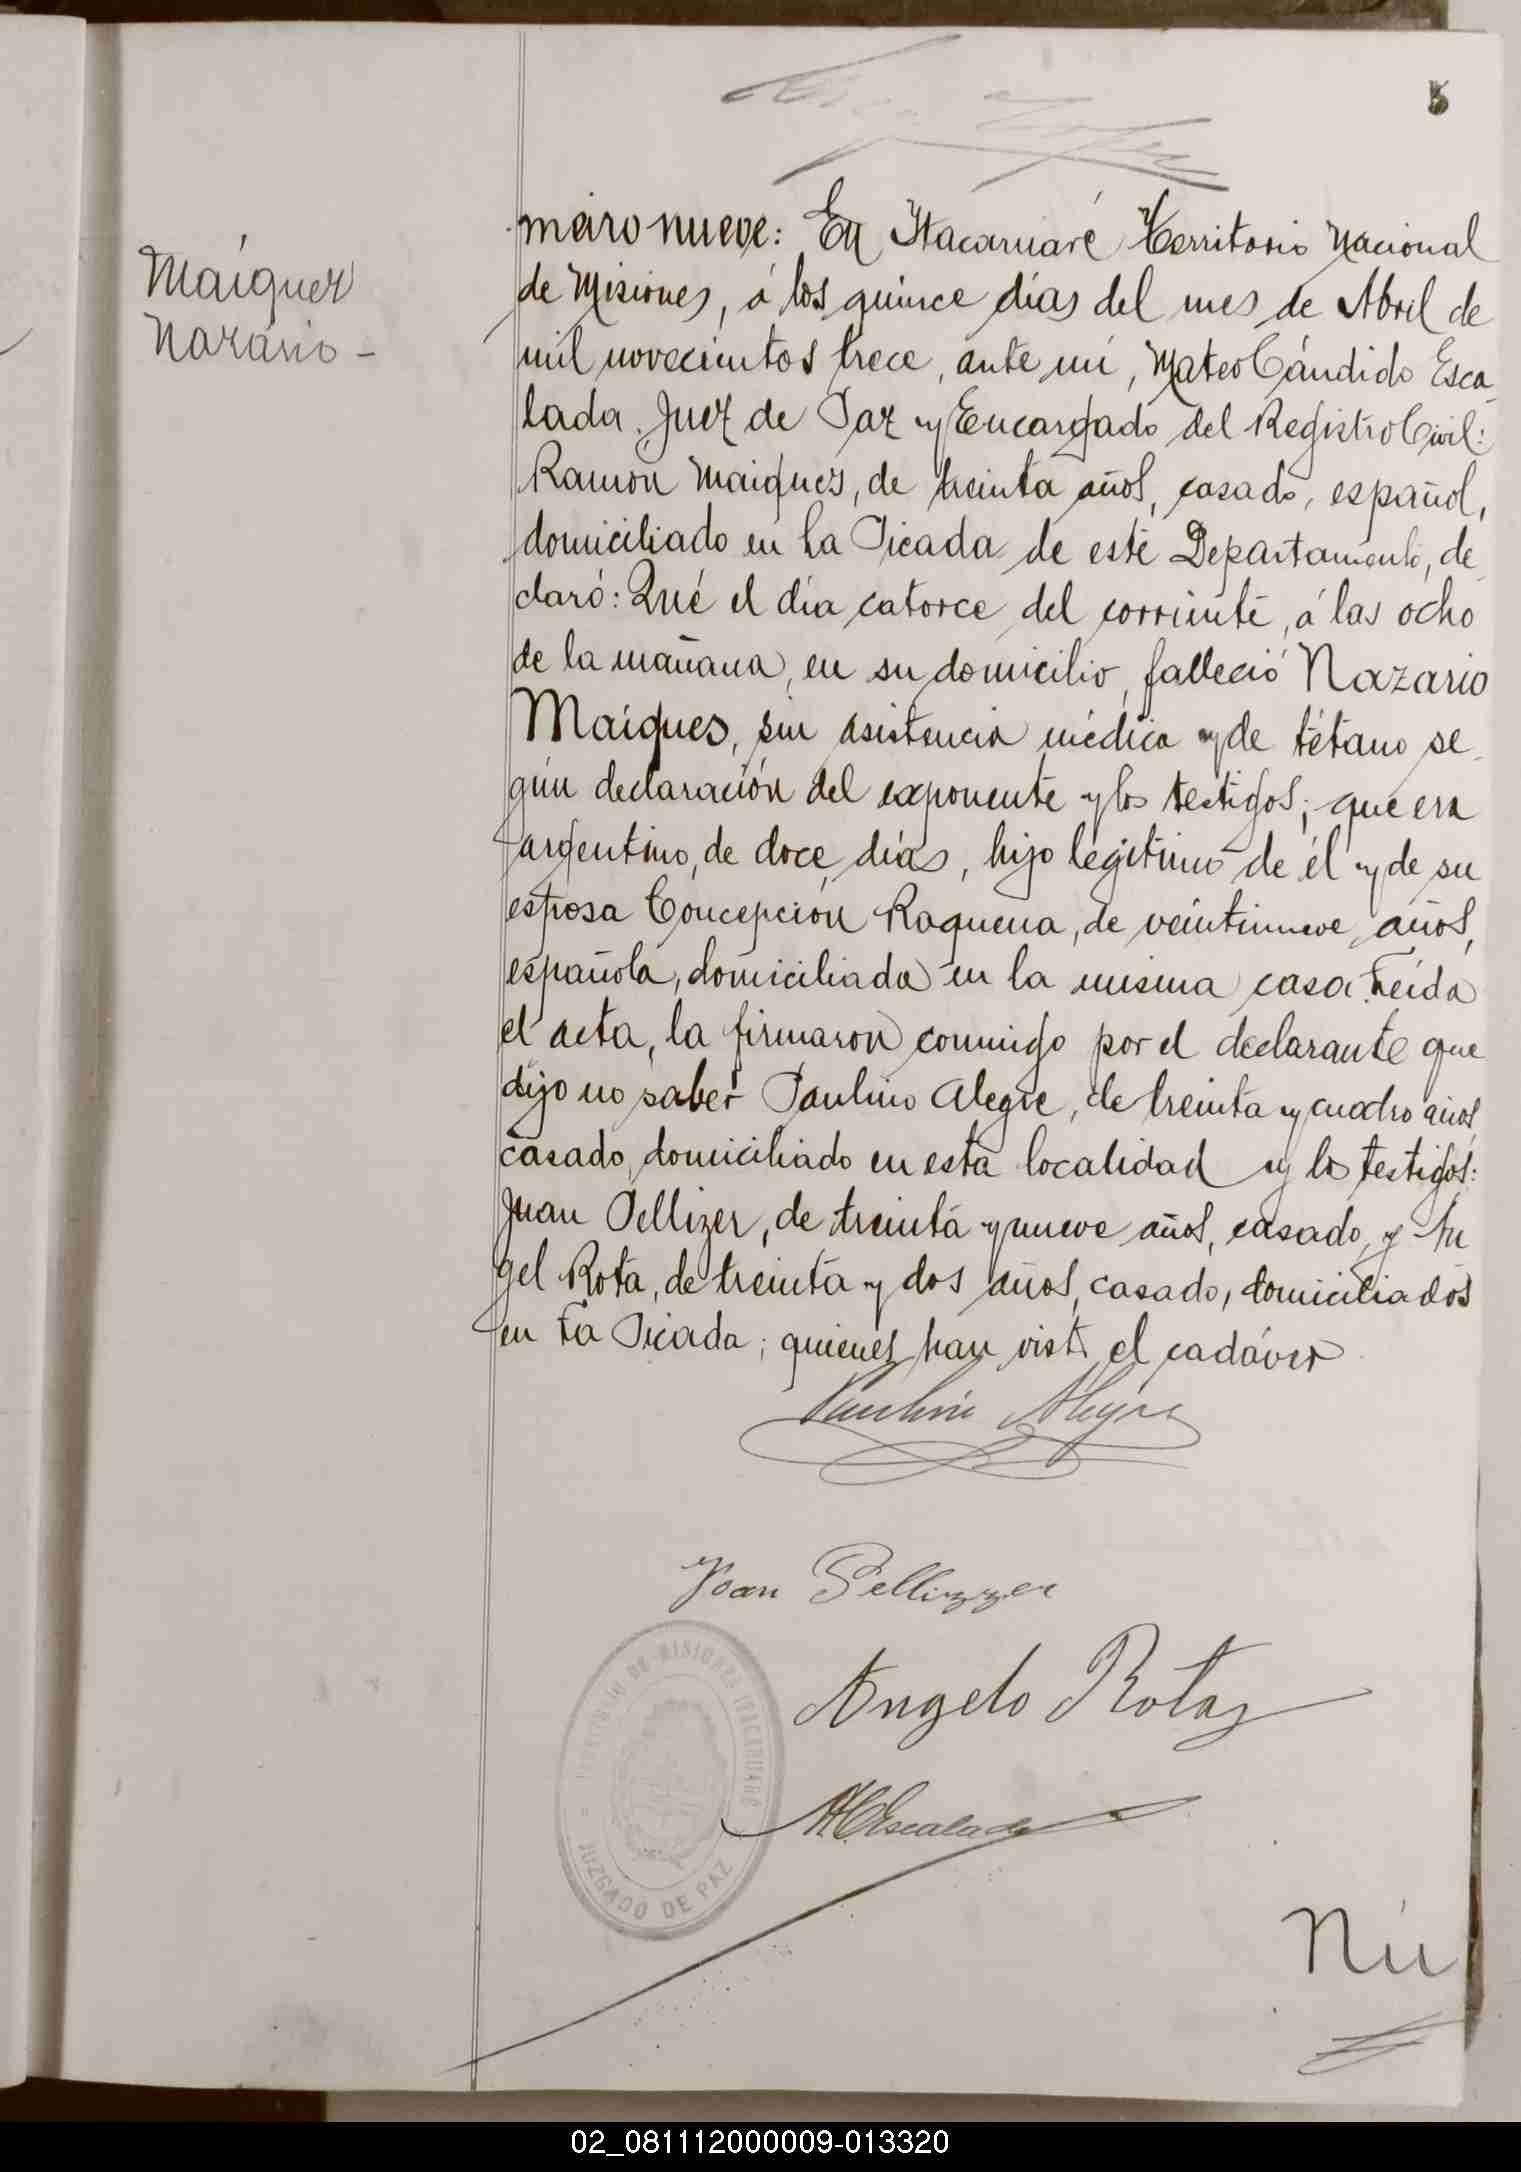 5
Maíquez
Nazário -
mero nueve: En Itacaruaré Territorio Nacional
de Misiones, á los quince días del mes de Abril de
mil novecientos trece, ante mí, Mateo Cándido Esca
lada. Juez de Paz y Encargado del Registro Civil:
Ramón Maiques, de treinta años, casado, español,
domiciliado en La Picada de este Departamento, de
claró: Qué el día catorce del corriente, á las ocho
de la mañana, en su domicilio, falleció Nazario
Maíques, sin asistencia médica y de tétano se
gún declaración del exponente y los testigos; que era
argentino, de doce días, hijo legítimo de él y de su
esposa Concepción Raquena, de veintinueve años,
española, domiciliada en la misma casa. Leída
el acta, la firmaron conmigo por el declarante que
dijo no saber Paulino Alegre, de treinta y cuatro años
casado, domiciliado en esta localidad y los testigos:
Juan Pellizer, de treinta y nueve años, casado, y An
gel Rota, de treinta y dos años, casado, domiciliados
en La Picada; quienes han visto el cadáver
Paulino Alegre
Joan Pellizzer
Angelo Rota
MCEscalada
TERRITORIO DE MISIONES ITACARUARÉ
= JUZGADO DE PAZ =
Nú
02_081112000009-013320